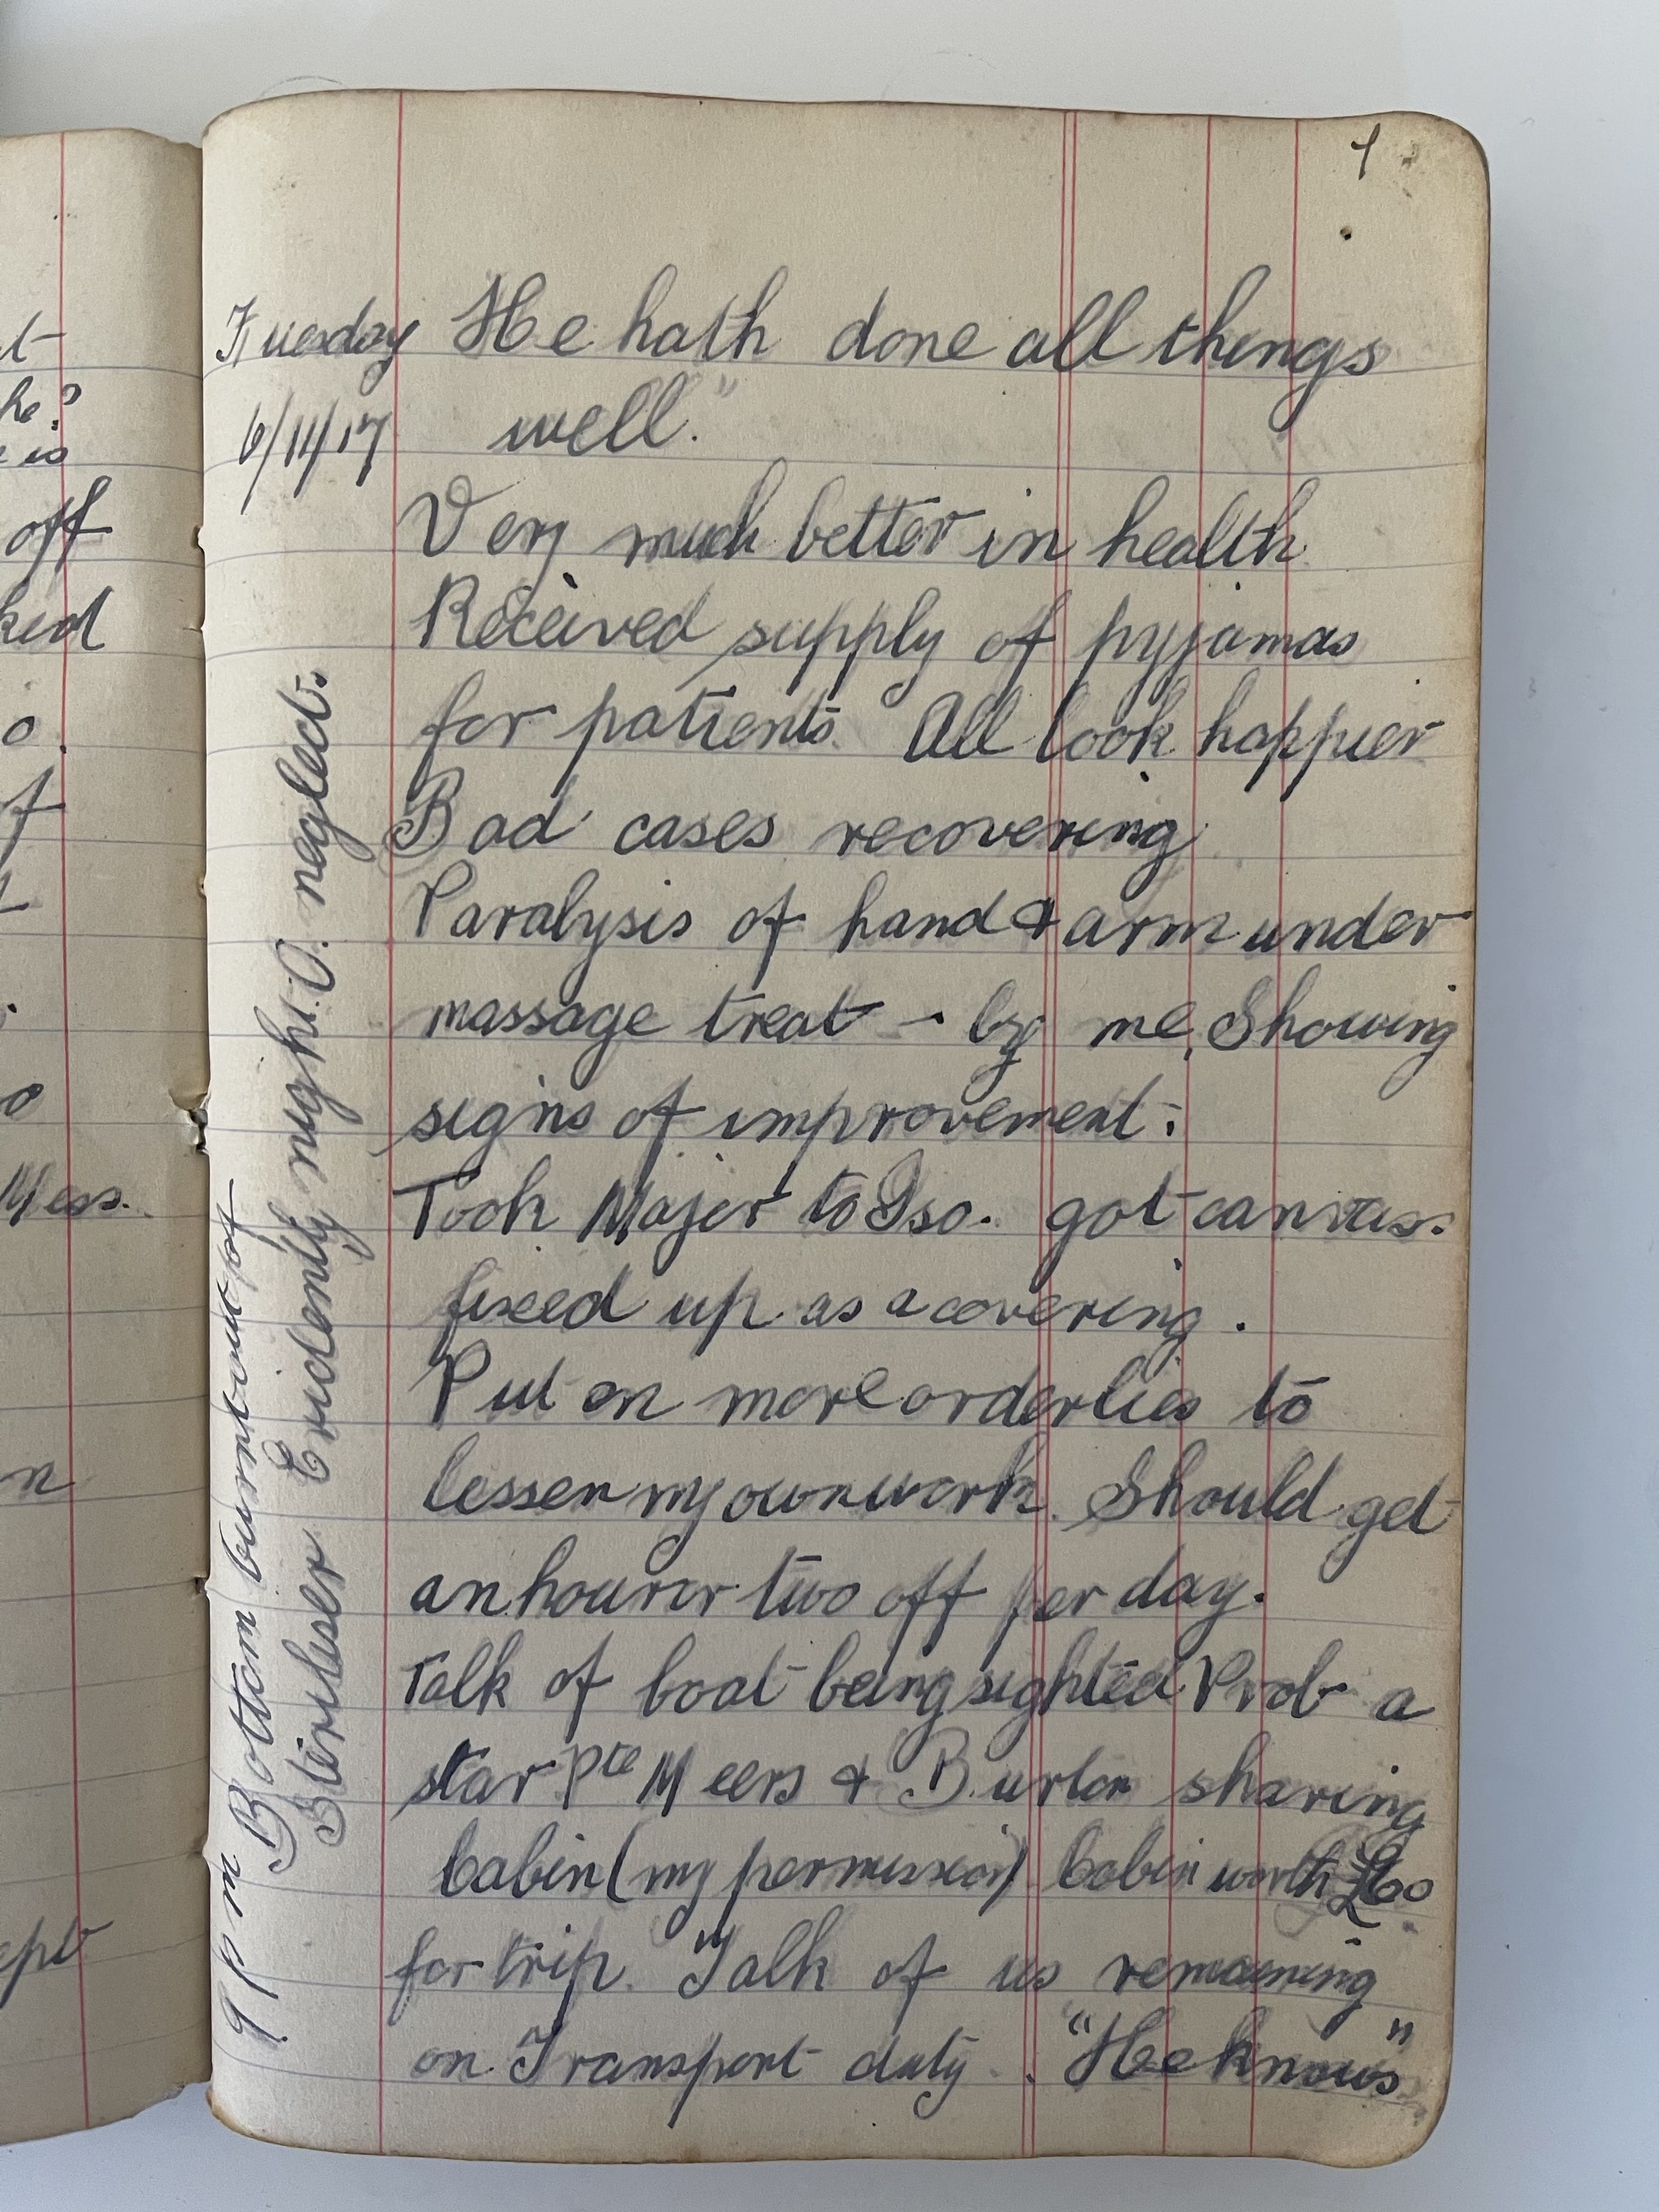 1
Tuesday He hath done all things
6/11/17 well."
Very much better in health
Received supply of pyjamas
for patients. All look happier
Bad cases recovering
Paralysis of hand & arm under
massage treat - by me, Showing
signs of improvement.
Took Major to Iso. got canvas.
fixed up as a covering.
Put on more orderlies to
lessen my own work. Should get
an hour or two off per day.
Talk of boat being sighted Prob a
star Pte Meers & Burton sharing
Cabin (my permission) Cabin worth £60
for trip. Talk of us remaining
on Transport duty. "He knows"
9 pm Bottom burnt out of
Steriliser Evidently night O. neglect.
t
he?
is
off
ked
o.
of
t
o
Mess.
n